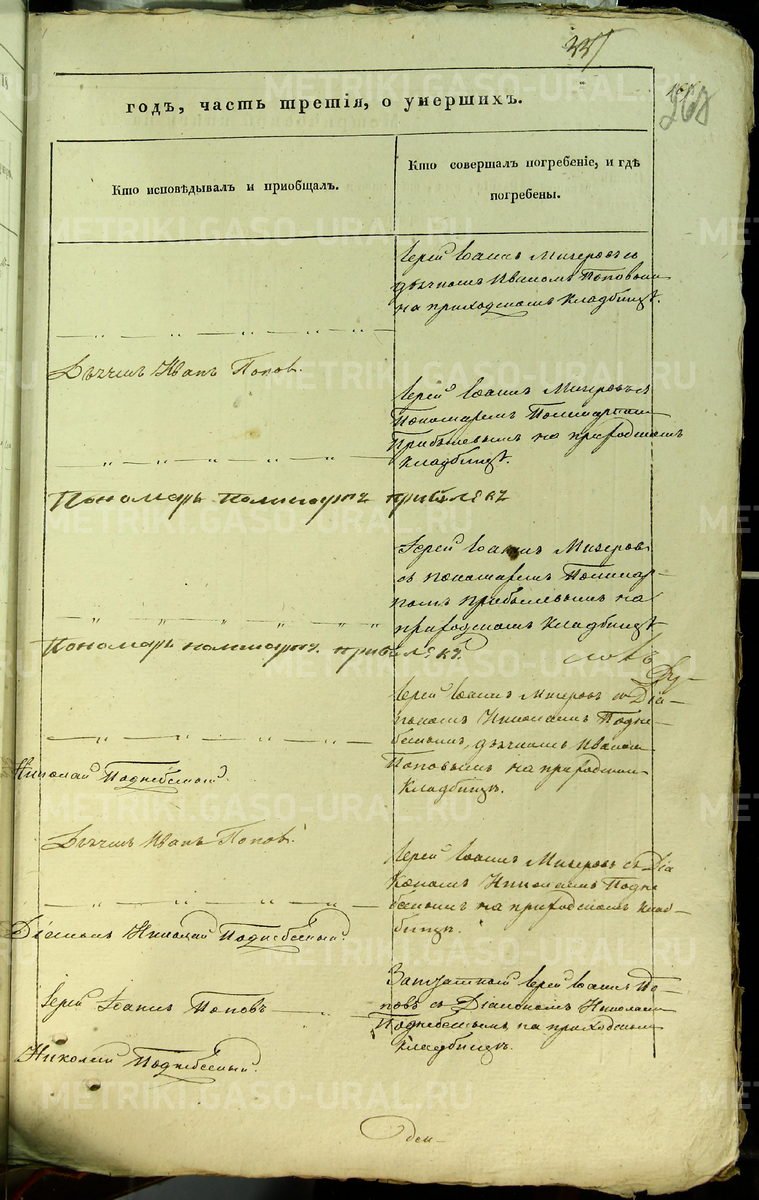 337
268
годъ, часть третія, о умершихъ.
Кто исповѣдывалъ и приобщалъ.
Кто совершалъ погребеніе, и гдѣ
погребены.
Іерей Іоаннъ Мизеровъ съ
дьячкомъ Иваномъ Поповымъ
на приходскомъ кладбищѣ.
Дьячекъ Иванъ Попов.
Іерей Іоаннъ Мизеровъ съ
Пономаремъ Поликарпомъ
Прибылевымъ на приходскомъ
кладбищѣ.
Пономарь Поликарпъ Прибылевъ
Іерей Іоаннъ Мизеровъ
съ пономаремъ Поликар-
помъ Прибылевымъ на
приходскомъ кладбищѣ
Пономарь Поликарпъ Прибылевъ.
Іерей Іоаннъ Мизеровъ съ Діа-
кономъ Николаемъ Подне-
беснымъ, дьячкомъ Иваномъ
Поповымъ на приходском
кладбищѣ.
Николай Поднебесный.
Дьячекъ Иванъ Попов.
Іерей Іоаннъ Мизеровъ съ Діа
кономъ Николаемъ Подне
беснымъ на приходскомъ клад-
бищѣ.
Діаконъ Николай Поднебесный.
Іерей Іоаннъ Поповъ
Заштатной Іерей Іоаннъ По-
повъ съ Діакономъ Николаемъ
Поднебеснымъ на приходском
кладбищѣ.
Николай Поднебесный.
METRIKI.GASO-URAL.RU